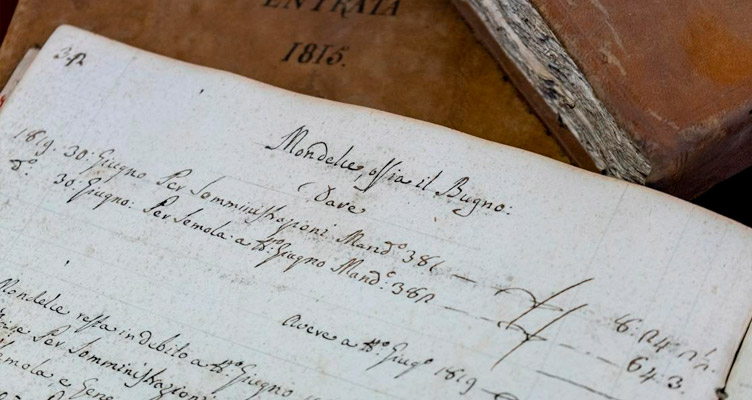 ENTRATA
1815.
Mondelie ossia il Bugno:
Dare
1819. 30: Giugno Per Somministrazioni Mand:º 381
dº: 30. Giugno: Per Semola a Giugno Mand:º 382
64.3.
Avere a Giugº 1819
Mondelie resta in debito a Giugno
Per Somministrazioni
Semola e Gene